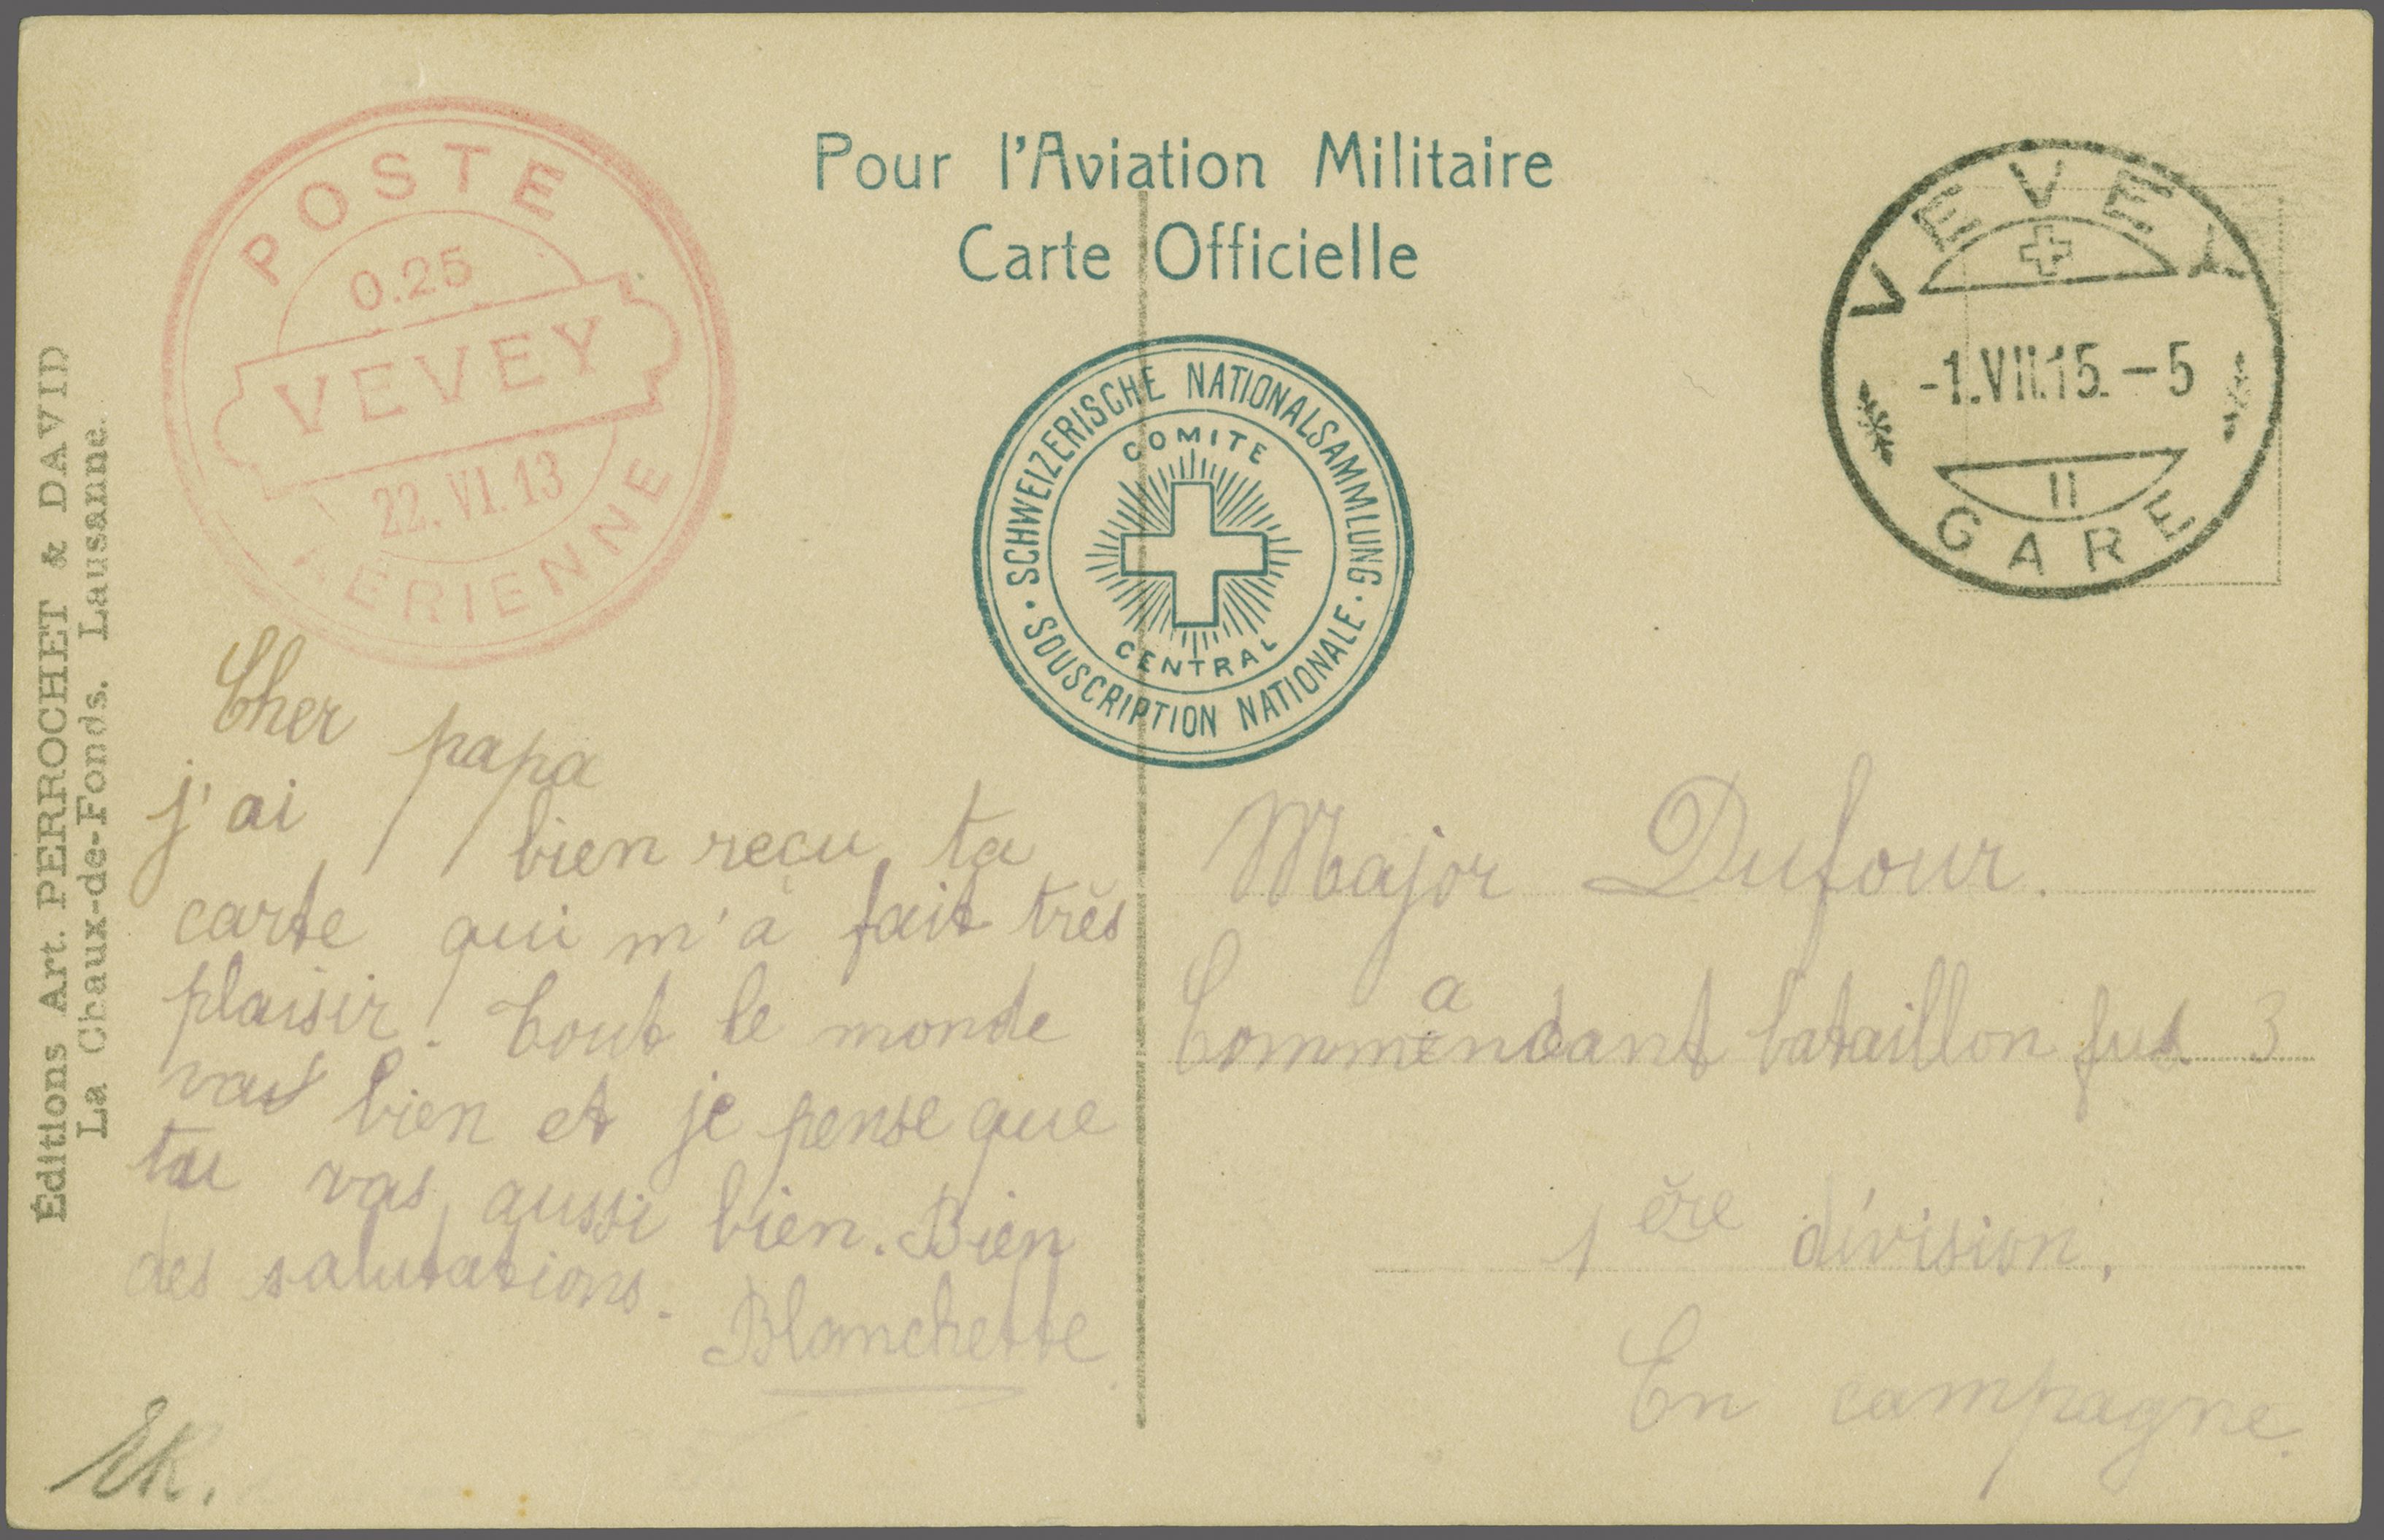 Pour l'Aviation Militaire
Carte Officielle
POSTE
0.25
VEVEY
22. VI. 13
ÉRIENNE
SCHWEIZERISCHE NATIONALSAMMLUNG
COMITE
CENTRAL
SOUSCRIPTION NATIONALE
VEVEY
-1.VII.15.-5
II
GARE
Éditions Art. PERROCHET & DAVID
La Chaux-de-Fonds. Lausanne.
Cher papa
j'ai bien reçu ta
carte qui m'a fait très
plaisir! Tout le monde
vas bien et je pense que
tu vas aussi bien. Bien
des salutations.
Blanchette
EK.
Major Dufour.
Commandant bataillon fus. 3
1ère division.
En campagne.